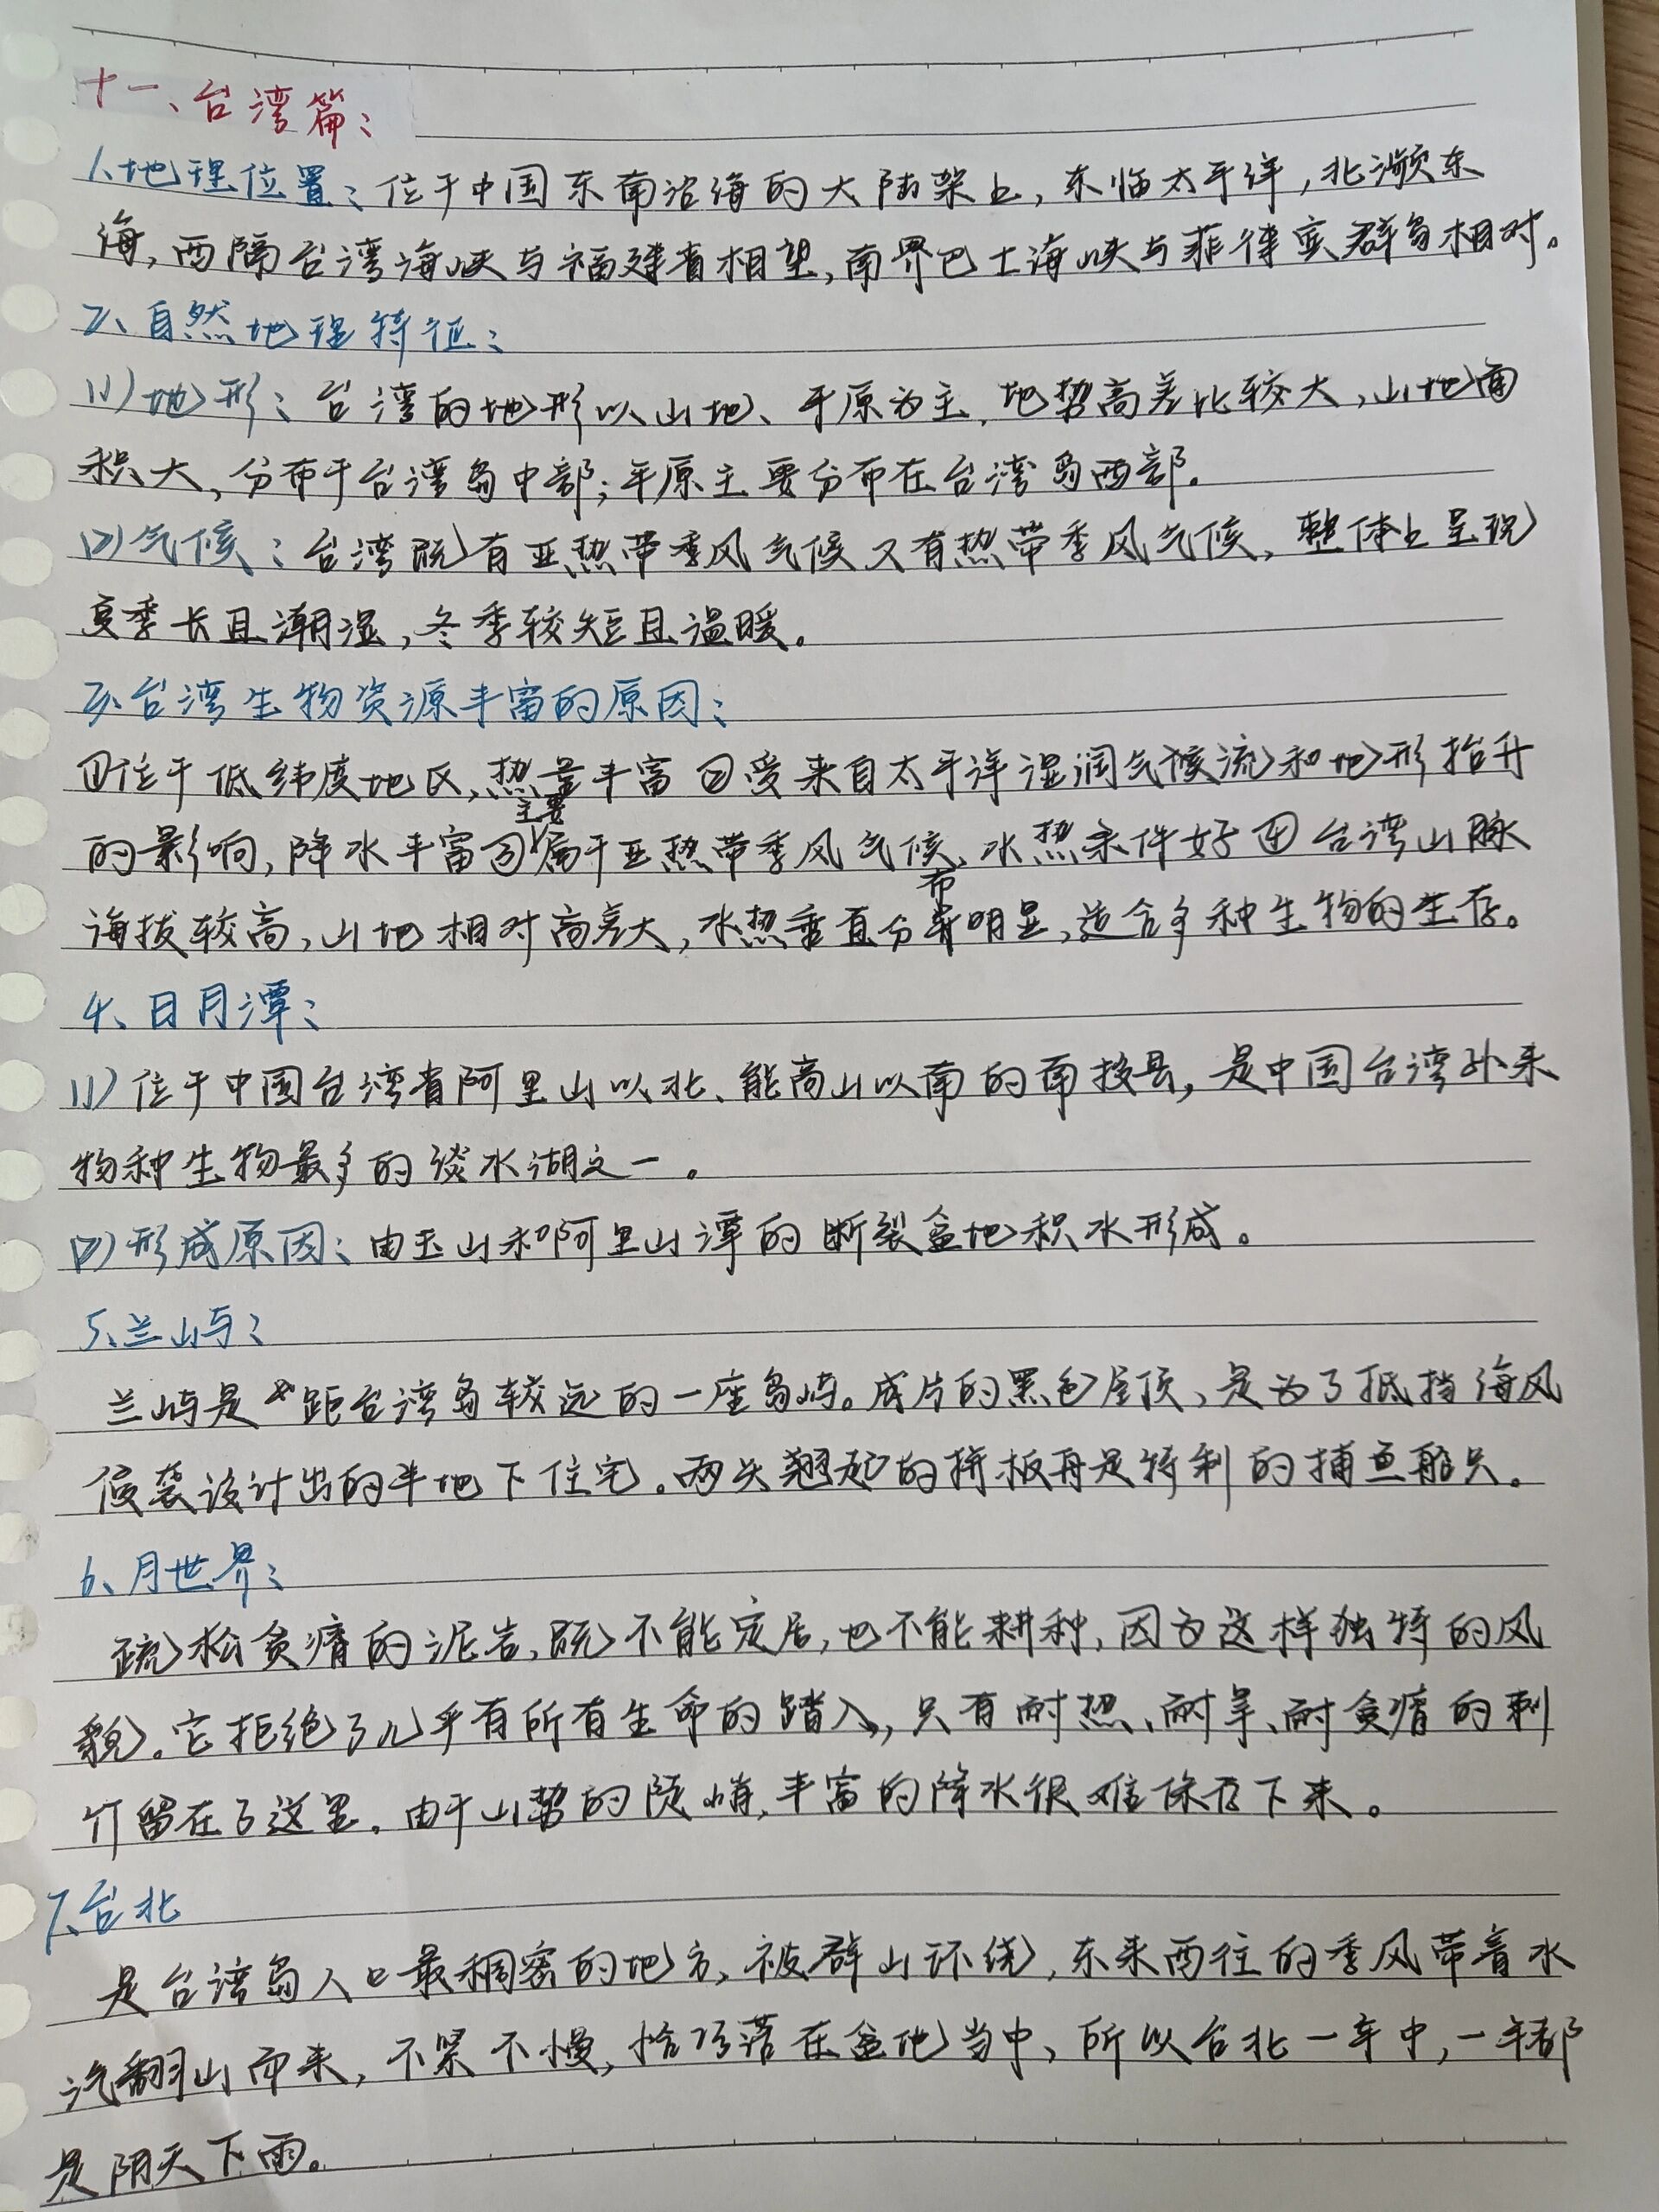 十一、台湾篇:
1.地理位置:位于中国东南沿海的大陆架上,东临太平洋,北濒东
海,西隔台湾海峡与福建省相望,南界巴士海峡与菲律宾群岛相对。
2、自然地理特征:
(1)地形:台湾的地形以山地、平原为主,地势高差比较大,山地面
积大,分布于台湾岛中部;平原主要分布在台湾岛西部。
(2)气候:台湾既有亚热带季风气候又有热带季风气候,整体上呈现
夏季长且潮湿,冬季较短且温暖。
3、台湾生物资源丰富的原因:
①位于低纬度地区,热量丰富②受来自太平洋湿润气候流和地形抬升
的影响,降水丰富③主要属于亚热带季风气候,水热条件好④台湾山脉
海拔较高,山地相对高差大,水热垂直分布明显,适合多种生物的生存。
4、日月潭:
(1)位于中国台湾省阿里山以北、能高山以南的南投县,是中国台湾外来
物种生物最多的淡水湖之一。
(2)形成原因:由玉山和阿里山潭的断裂盆地积水形成。
5、兰屿:
兰屿是距台湾岛较远的一座岛屿。成片的黑色屋顶,是为了抵挡海风
侵袭设计出的半地下住宅。两头翘起的拼板舟是特利的捕鱼船只。
6、月世界:
疏松贫瘠的泥岩,既不能定居,也不能耕种,因为这样独特的风
貌。它拒绝了几乎有所有生命的踏入,只有耐热、耐旱、耐贫瘠的刺
竹留在了这里。由于山势的陡峭,丰富的降水很难保存下来。
7、台北
是台湾岛人口最稠密的地方,被群山环绕,东来西往的季风带着水
汽翻山而来,不紧不慢,恰巧落在盆地当中,所以台北一年中,一半都
是阴天下雨。